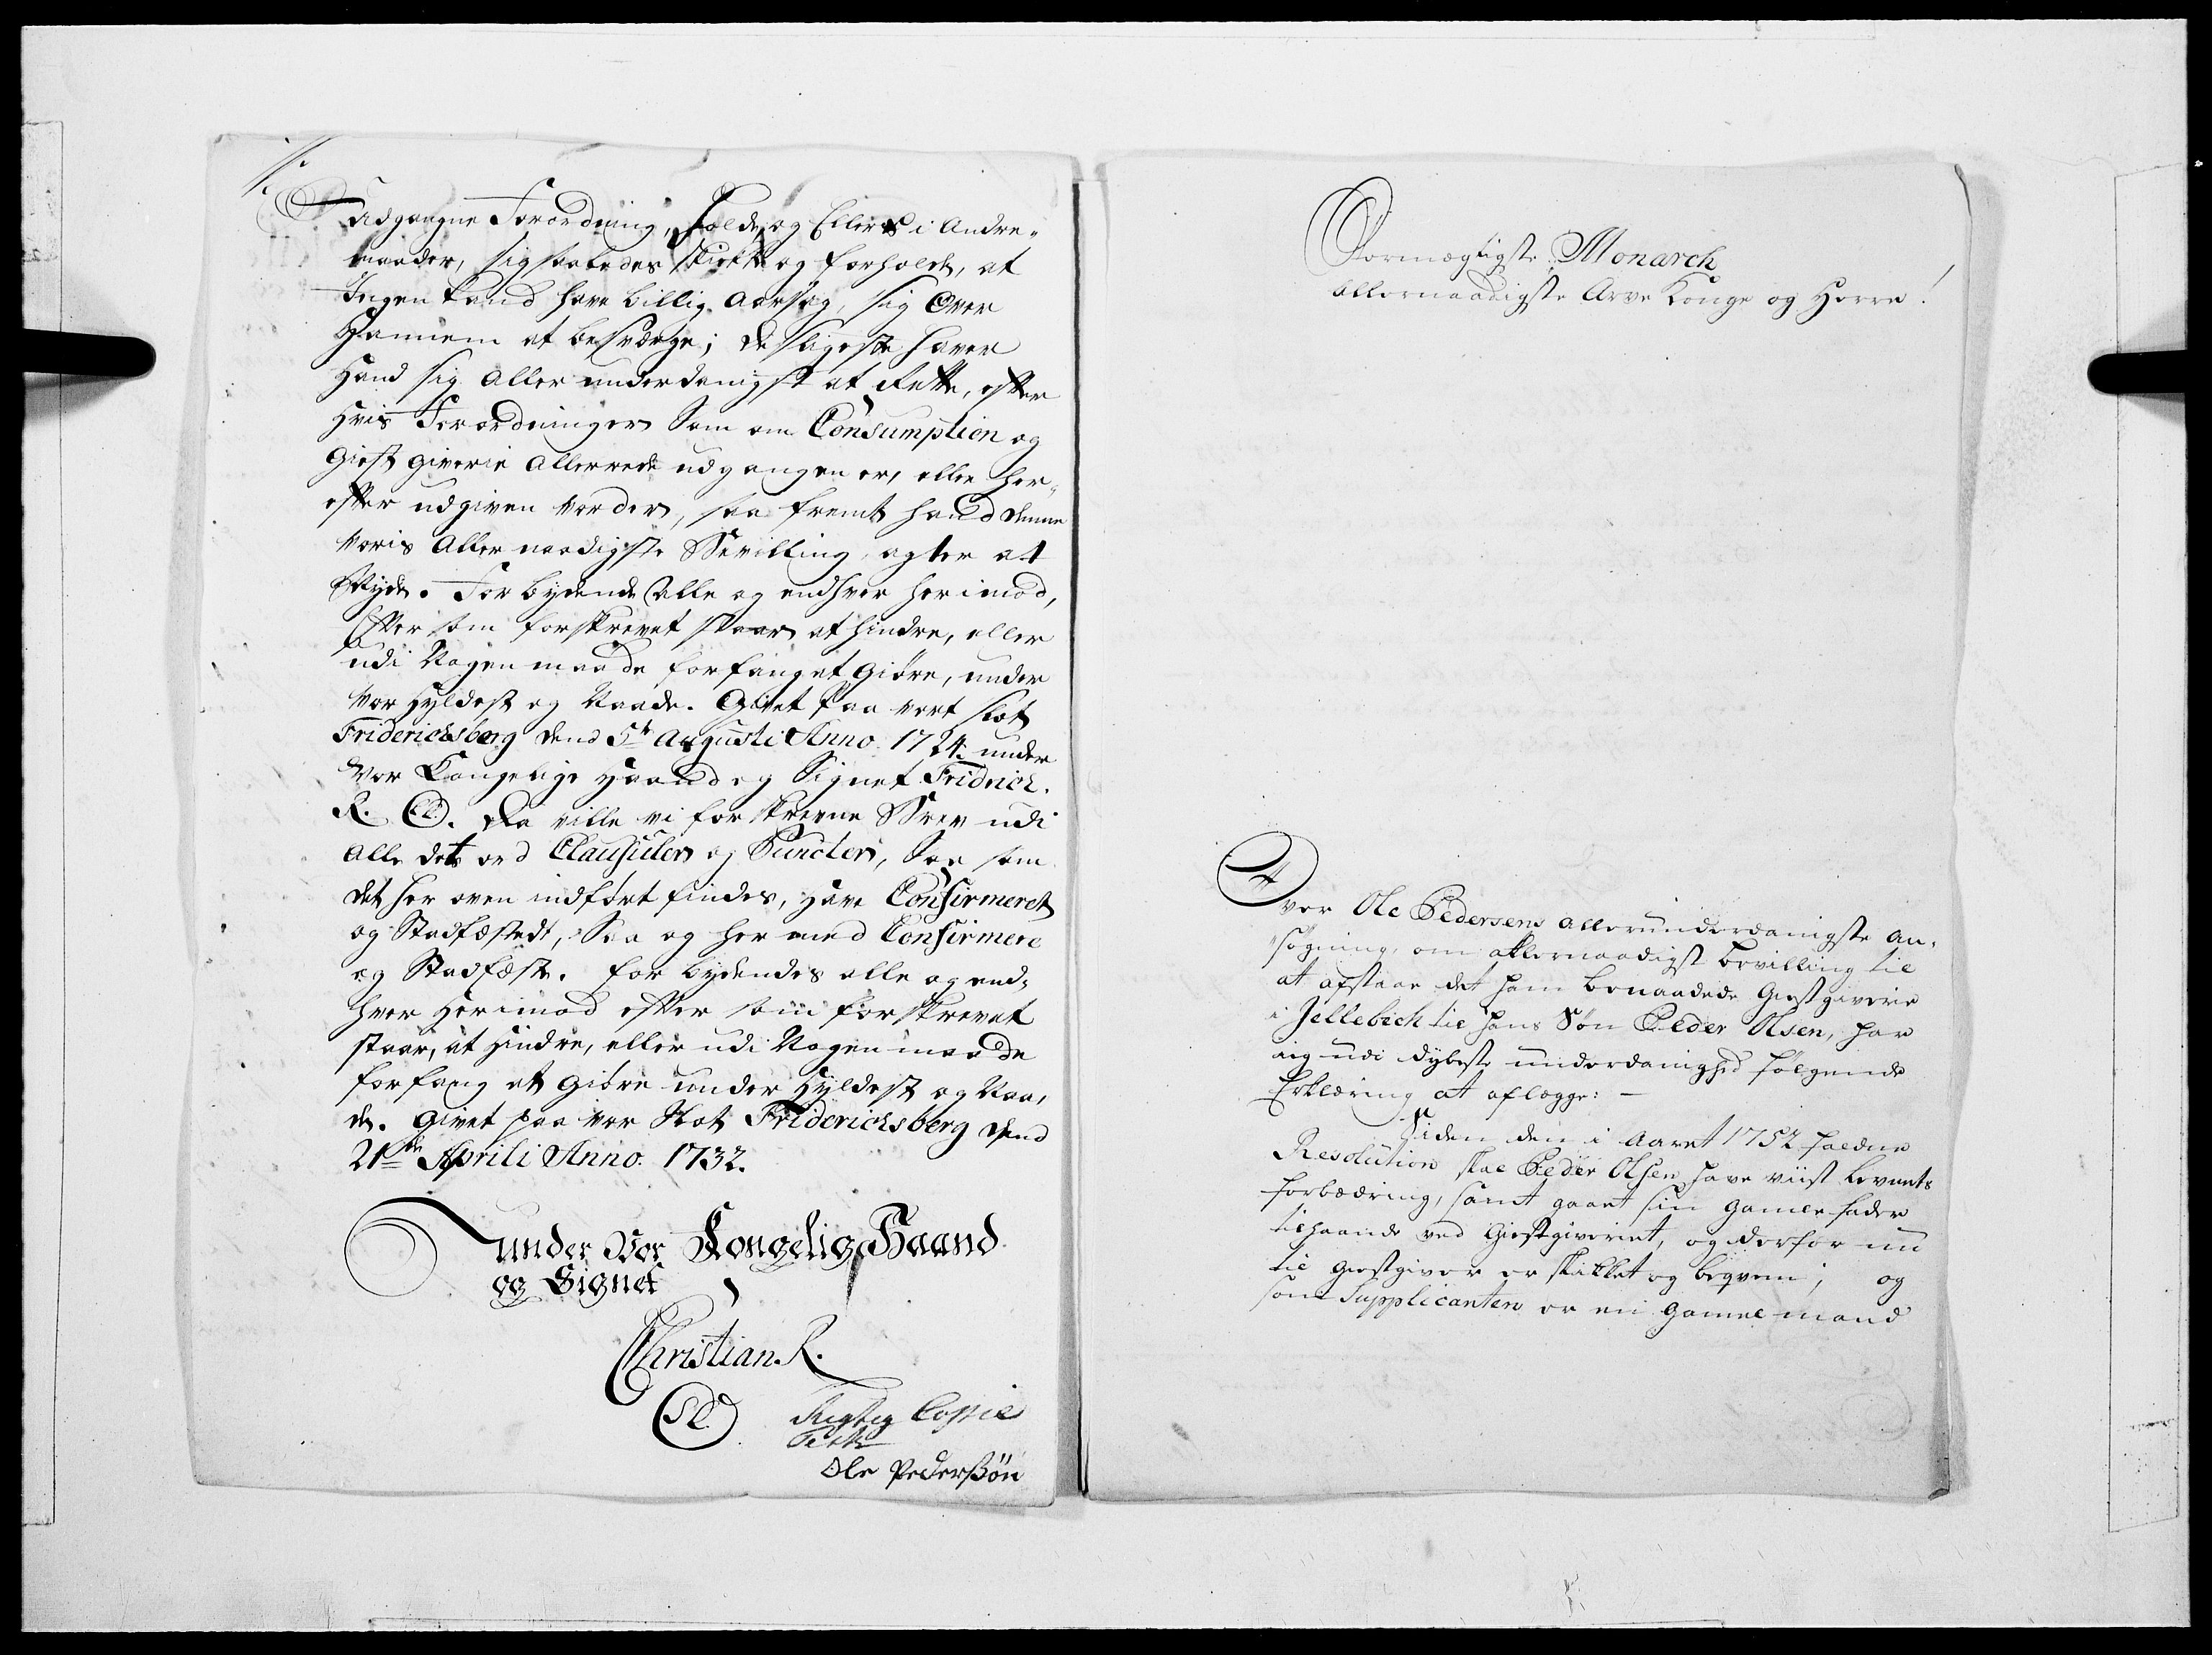 udgangne Forordning, holde, og Ellers i Andre
maader, sig saaledes skikke og forholde, at
Ingen kand have billig Aarsag, sig Over
Hannem at besværge; desligeste haver
Hand sig Allerunderdanigst at rette, efter
hvis Forordninger Som om Consumption og
Giestgiverie Allerrede udgangen er, eller her
efter udgiven vorder, saa fremt hand denne
voris Allernaadigste Bevilling agter at
Nyde. Forbydende Alle og endhver herimod,
Efter som forskrevet staar at hindre, eller
udi Nogen maade forfanget Giöre, under
vor Hyldest og Naade. Givet Paa vort slot
Friderichsberg dend 5te Augusti Anno 1724 under
Vor Kongelige Haand og Signet Fridrich.
R. da ville vi forskrevne Brev udi
Alle dets ord Clausuler og Puncter, Saa som
det her oven indfört findes, have Confirmeret
og Stadfæstedt, Saa og her med Confirmere
og Stadfæste. forbydendes alle og end-
hver herimod efter som forskrevet
staar, at hindre, eller udi Nogen maade
forfang at Giöre under Hyldest og Naa-
de. Givet paa vor Slot Friderichsberg dend
21de Aprili Anno 1732.
under Vor Kongelig Haand
og Signet
Christian. R.
Rigtig Copie
Test
Ole Pederßön
Stormægtigste Monarch
allernaadigste Arve Konge og Herre!
Over Ole Pedersens allerunderdanigste an-
søgning, om allernaadigst bevilling til
at afstaae det ham benaadede Giestgiverie
i Jellebech til hans Søn Peder Olsen, har
ieg udi dybeste underdanighed følgende
Erklæring at aflægge:
Siden den i Aaret 1752 faldne
Resolution skal Peder Olsen have viist Levnets
forbædring, samt gaaet sin gamle fader
tilhaande ved Giestgiveriet, og derfor nu
til giestgiver er skikket og beqvem; og
som Supplicanten er en gammel mand